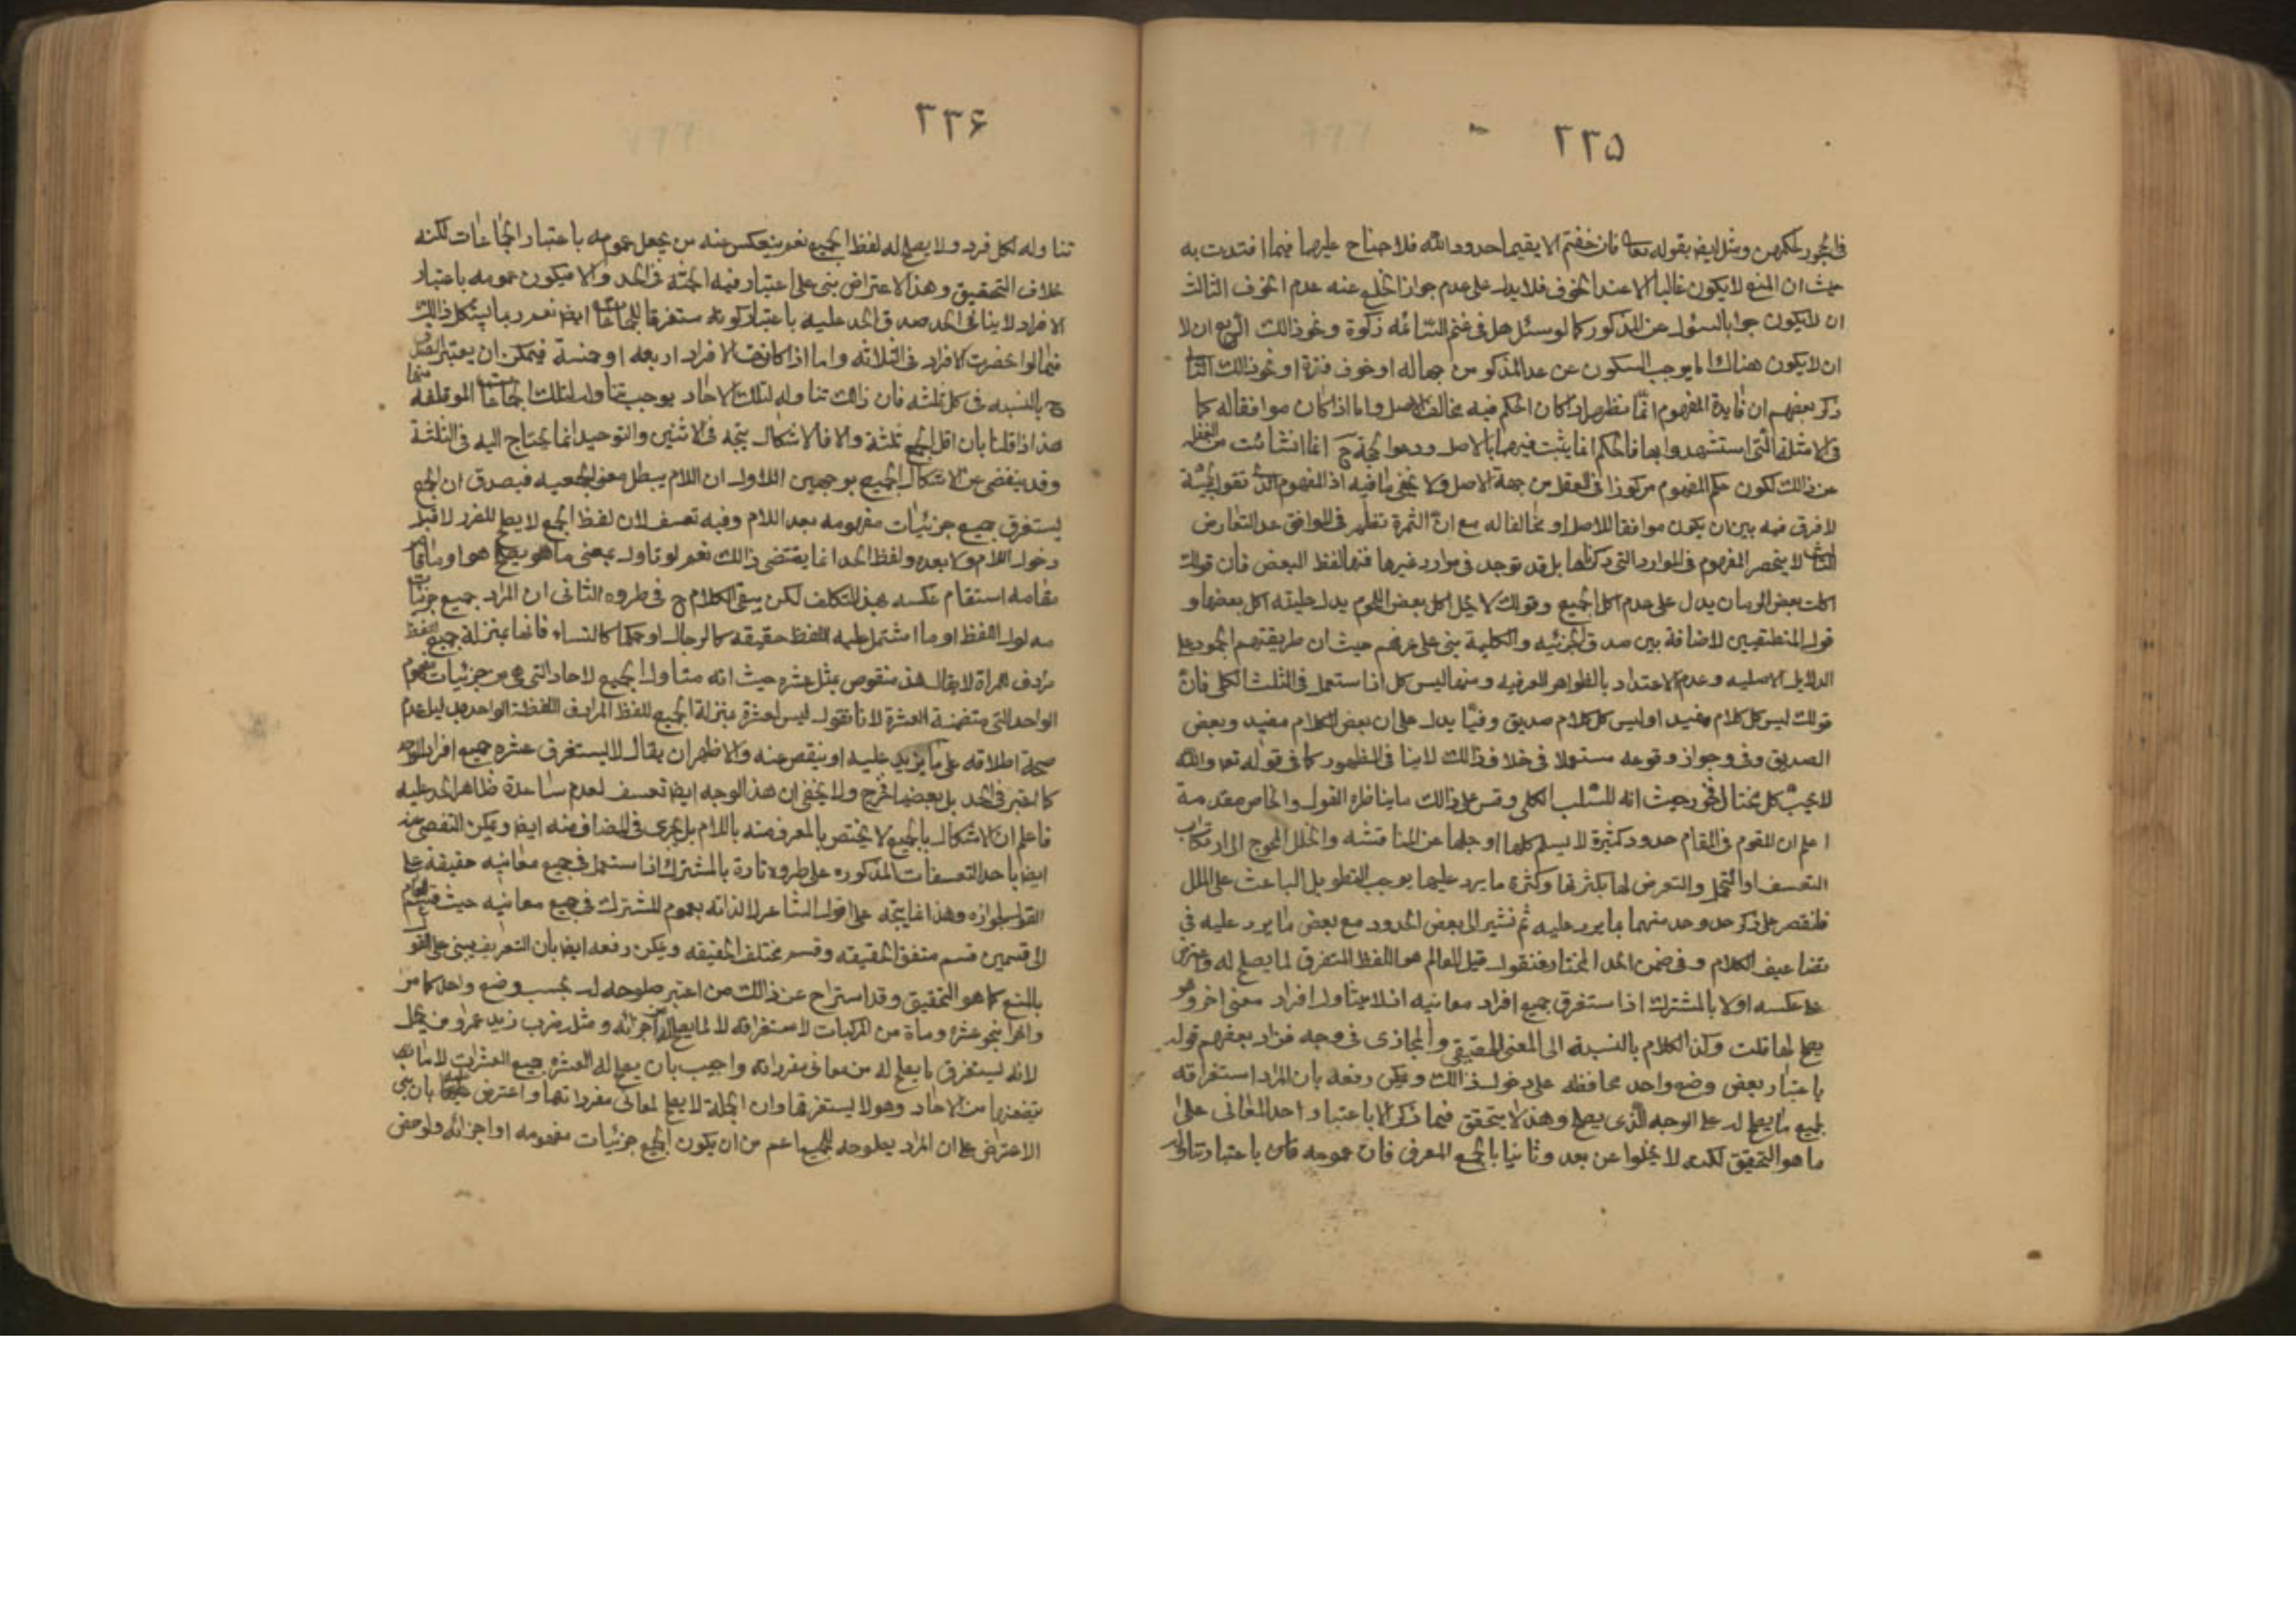 ٢٣٥
في حجوركم لكمهن ومثل ايضا بقوله تعالى فان خفتم الا يقيما حدود الله فلا جناح عليهما فيما افتدت به
حيث ان المنع لا يكون غالبا الا عند الخوف فلا يدل على عدم جواز الخلع عنه عدم الخوف الثالث
ان لا يكون جوابا لسؤل عن المذكور كما لو سئل هل في غنم السائمه زكوة ونحو ذالك الرابع ان لا
ان لا يكون هناك ما يوجب السكون عن عد المذكور من جهاله او خوف فتنة او نحو ذالك
ذكر بعضهم ان فايدة المفهوم انما تظهر اذا كان الحكم فيه مخالف الاصل واما اذا كان موافقا له كما
في الامثلة التي استشهدوا بها فالحكم انما يثبت فيها بالاصل ودعوا حجة ح انما نشائت من
عن ذالك لكون حكم المفهوم مركوزا في العقل من جهة الاصل ولا يخفى ما فيه اذ المفهوم الذي نقول بحجية
لا فرق فيه بين ان يكون موافقا للاصل او مخالفا له مع ان الثمرة تظهر في الموافق عند التعارض
الثالث لا ينحصر المفهوم في الموارد التي ذكرناها بل قد توجد في موارد غيرها فمنها لفظ البعض فان قولك
اكلت بعض الرمان يدل على عدم اكل الجميع وقولك لا يحل اكل بعض اللحوم يدل حليته اكل بعضها و
قول المنطقيين لاضافة بين صدق الجزئيه والكلية بنى على عرفهم حيث ان طريقتهم الجمود على
الدلايل الاصليه وعدم الاعتداد بالظواهر العرفيه ومنها ليس كل اذا ستعمل في الثلث الكلى فان
قولك ليس كل كلام مفيد او ليس كل كلام صديق وفيّا يدل على ان بعض الكلام مفيد وبعض
الصديق وفى وجواز وقوعه مستعملا في خلاف ذالك لا ينافى الظهور كما في قوله تعا والله
لا يحب كل مختال فخور حيث انه للسلب الكلى وقس على ذالك ما يناظره القول والخاص مقدمة
اعلم ان للقوم في المقام حدود كثيرة لا يسلم كلها او جلها عن المناقشه والخلل المحوج الى ارتكاب
التعسف او التحمل والتعرض لها بكثرتها وكثرة ما يرد عليها يوجب التطويل الباعث على الملل
فلنقصر على ذكر حد وحد منهما بما يرد عليه ثم نشير الى بعض الحدود مع بعض ما يرد عليه في
تضاعيف الكلام وفي ضمن الحد المختار فنقول قيل العام هو اللفظ المستغرق لما يصلح له واعترض
على عكسه اولا بالمشترك اذا ستغرق جميع افراد معانيه اذ لا يتناول افراد معنى اخر وهو
يصلح لها قلت وكذا الكلام بالنسبة الى المعنى الحقيقي والمجازى في وجه فزاد بعضهم قوله
باعتبار بعض وضع واحد محافظه على دخول ذالك ويمكن رفعه بان المراد استغراقه
لجميع ما يصلح له على الوجه الذى يصلح وهذا لا يتحقق فيما ذكر الا باعتبار احد المعانى على
ما هو التحقيق لكنه لا يخلوا عن بعد وثانيا بالجمع المعرف فان عمومه باعتبار تناوله
٢٣۶
تناوله لكل فرد ولا يصلح له لفظ الجميع نعم ينعكس عنه من يجعل عمومه باعتبار الجماعات لكنه
خلاف التحقيق وهذا الاعتراض بنى على اعتبار فيه الحيثية في الحد والا فيكون عمومه باعتبار
الافراد لا ينافى الحد صدق الحد عليه باعتبار كونه مستغرقا للجماعات ايضا نعم ربما يشكل ذالك
فيما لو انحضرت الافراد في الثلاثه واما اذا كانت الافراد اربعه او خمسة فيمكن ان يعتبر الصدق
ح بالنسبه في كل ثلثه فان ذالك تناوله لتلك الاحاد يوجب تناوله لتلك الجماعات الموتلفة منها
هذا اذا قلنا بان اقل الجمع ثلثة والا فالاشكال يتجه في الاثنين والتوحيد انما يحتاج اليه في الثلثة
وقد ينفضى عن الاشكال الجميع بوجهين الاول ان اللام يبطل معنى الجمعيه فيصدق ان الجمع
ليستغرق جميع جزئيات مفهومه بعد اللام وفيه تعسف لان لفظ الجمع لا يصلح للفرد لا قبل
دخول اللام ولا بعده ولفظ الحد انما يقتضى ذالك نعم لو تاول بمعنى ما هو يصلح هو او ما قام
مقامه استقام عكسه بهذا التكلف لكن يبقى الكلام ح في طرده الثانى ان المراد جميع جزئيات
مدلول اللفظ او ما اشتمل عليه اللفظ حقيقه كالرجال او حكما كالنساء فانها بمنزلة جميع اللفظ
مرادف امراة لا يقال هذا منقوص بمثل عشره حيث انه متناول الجميع لاحاد التى هى من جزئيات مفهوم
الواحد التى متضمنة العشرة لانا نقول ليس العشرة بمنزلة الجميع للفظ المرادف اللفظة الواحد بدليل عدم
صحة اطلاقه على ما يزيد عليه او ينقص عنه والاظهر ان يقال لا يستغرق عشره جميع افراد الواحد
كما اعتبر في الحد بل بعضها فخرج ولا يخفى ان هذا الوجه ايضا تعسف لعدم ساعدة ظاهر الحد عليه
فاعلم ان الاشكال بالجميع لا يختص بالمعرف منه باللام بل يجرى في المضاف منه ايضا ويمكن التفصى عنه
ايضا باحد التعسفات المذكوره على طرده تارة بالمشترك اذا ستعمل في جميع معانيه حقيقة على
القول بجوازه وهذا انما يتجه على قول الشاعر لا لذاته بعموم المشترك في جميع معانيه حيث قسم العام
الى قسمين قسم متفق الحقيقه وقسم مختلف الحقيقه ويمكن رفعه ايضا بان التعريف يبنى على القو
بالمنع كما هو التحقيق وقد استراح عن ذالك من اعتبر صلوحه له بحسب وضع واحد كما مر
واخرا بنحو عشره ومأة من المركبات لاستغراقه لا لما يصلح له من اجزائه ومثل ضرب زيد عمرو من جمل
لانه ليستغرق ما يصلح له من معانى مفرداته واجيب بان يصلح له العشره جميع العشرات لا ما
يتضمنها من الاحاد وهو لا ليستغرقها وان الجملة لا يصلح لمعانى مفرداتها واعترض عليها بان بنى
الاعتراض على ان المراد يصلوحه للجميع اعم من ان يكون الجميع جزئيات مفهومه او اجزائه ولو خص